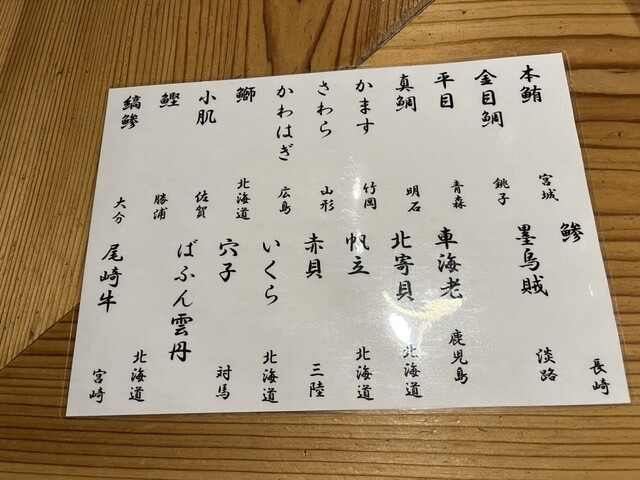 本鮪 宮城
金目鯛 銚子
平目 青森
真鯛 明石
かます 竹岡
さわら 山形
かわはぎ 広島
鰤 北海道
小肌 佐賀
鰹 勝浦
縞鯵 大分
鯵 長崎
墨烏賊 淡路
車海老 鹿児島
北寄貝 北海道
帆立 北海道
赤貝 三陸
いくら 北海道
穴子 対馬
ばふん雲丹 北海道
尾崎牛 宮崎